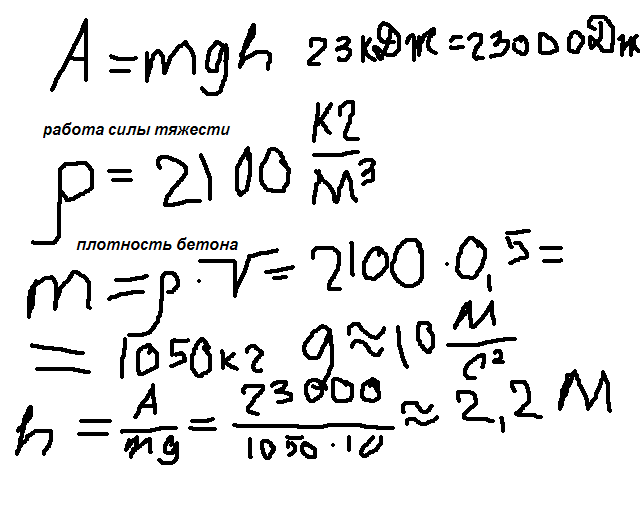 A = mgh 23 кДж = 23000 Дж
работа силы тяжести
ρ = 2100 кг/м³
плотность бетона
m = ρ · V = 2100 · 0,5 =
= 1050 кг g ≈ 10 м/с²
h = A/mg = 23000/1050 · 10 ≈ 2,2 м